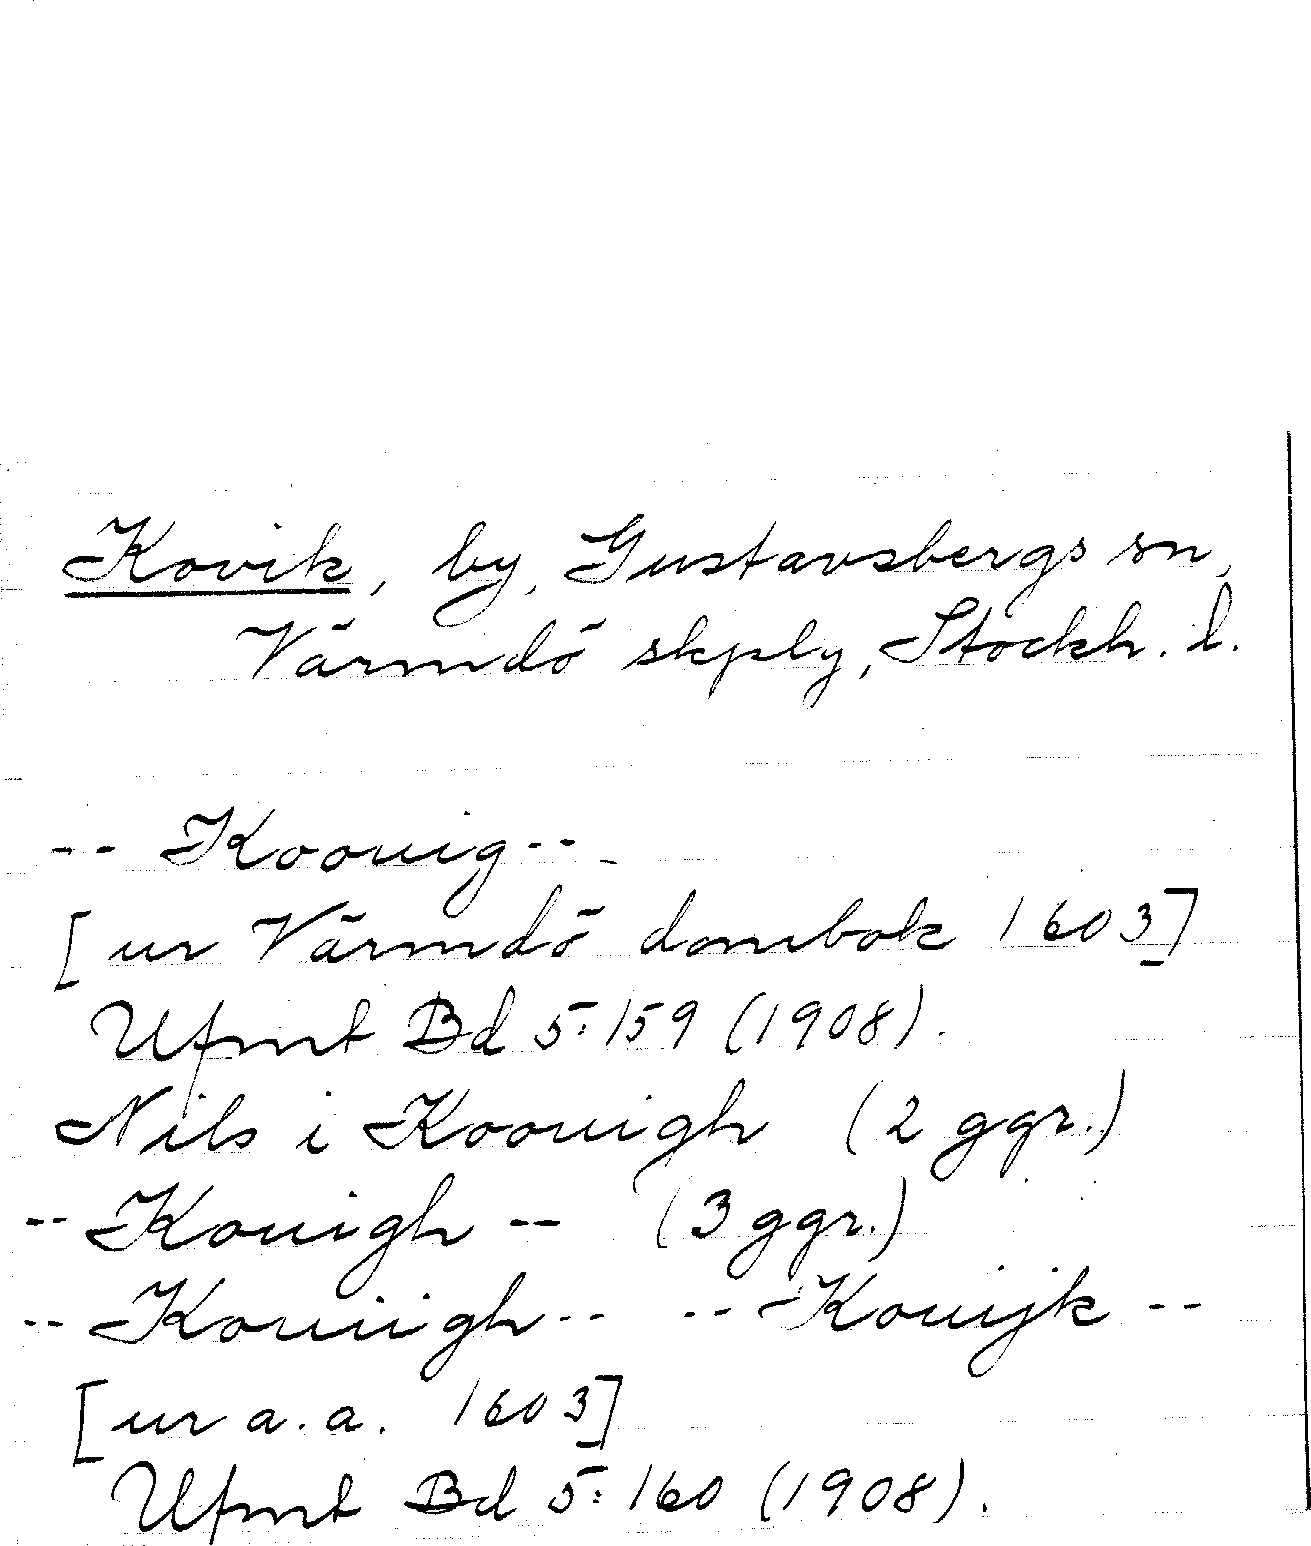 Kovik, by, Gustavsbergs sn,
Värmdö skply, Stockh. l.
-- Koouig --
[ur Värmdö dombok 1603]
Ufmt Bd 5:159 (1908).
Nils i Koouigh (2 ggr.)
-- Kouigh -- (3 ggr.)
-- Kouiigh -- -- Kouijk --
[ur a.a. 1603]
Ufmt Bd 5:160 (1908).